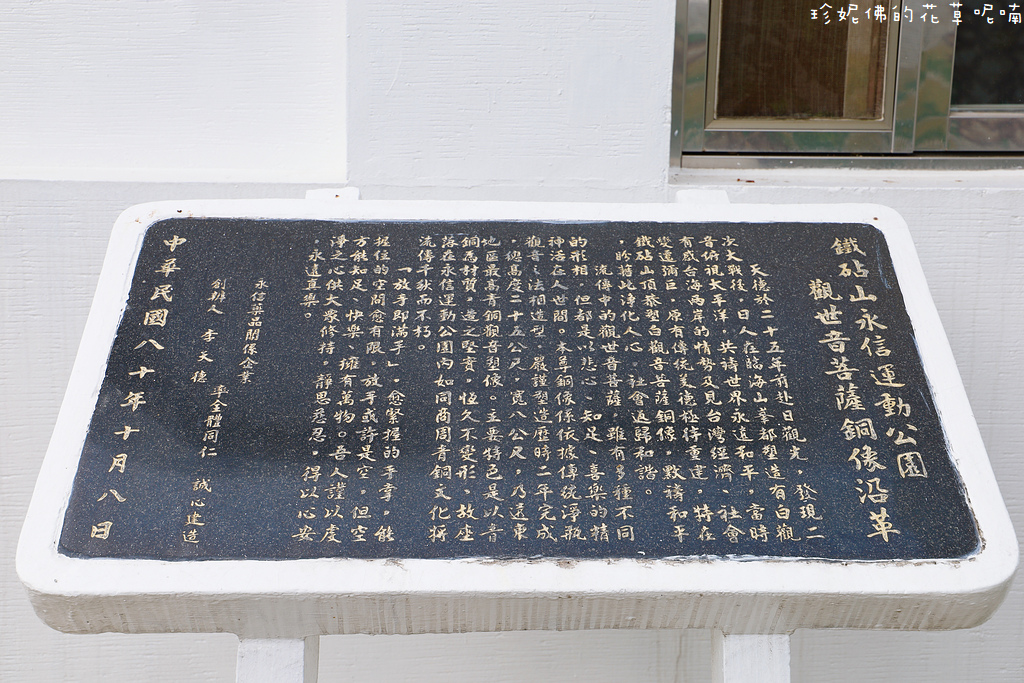 珍妮佛的花草呢喃
鐵砧山永信運動公園
觀世音菩薩銅像沿革
天德於二十五年前赴日觀光，發現二
次大戰後，日人在臨海山峯都塑造有白觀
音俯視太平洋，共禱世界永遠和平，當時
有感台海兩岸的情勢及見台灣經濟、社會
變遷彌巨，原有傳統美德極待重建，特在
鐵砧山頂恭塑白觀音菩薩銅像，默禱和平
，盼藉此淨化人心，社會返歸和諧。
流傳中的觀世音菩薩，雖有多種不同
的形相，但都是以悲心、知足、喜樂的精
神活在人世間。本尊銅像係依據傳統淨瓶
觀音之法相造型，嚴謹塑造歷時二年完成
，總高度二十五公尺，寬八公尺，乃遠東
地區最高青銅觀音塑像。主要特色是以青
銅為材質。造之堅實，恆久不變形，故座
落在永信運動公園內如同商周青銅文化將
流傳千秋而不朽。
「放手即滿手」，愈緊握的手拳，能
握住的空間愈有限。放手或許是空，但空
方能知足、快樂，擁有萬物。吾人謹以虔
淨之心供大眾修持。靜思悉忍，得以心安
。永遠真樂。
永信藥品關係企業
創辦人 李天德 率全體同仁 誠心建造
中華民國八十年十月八日